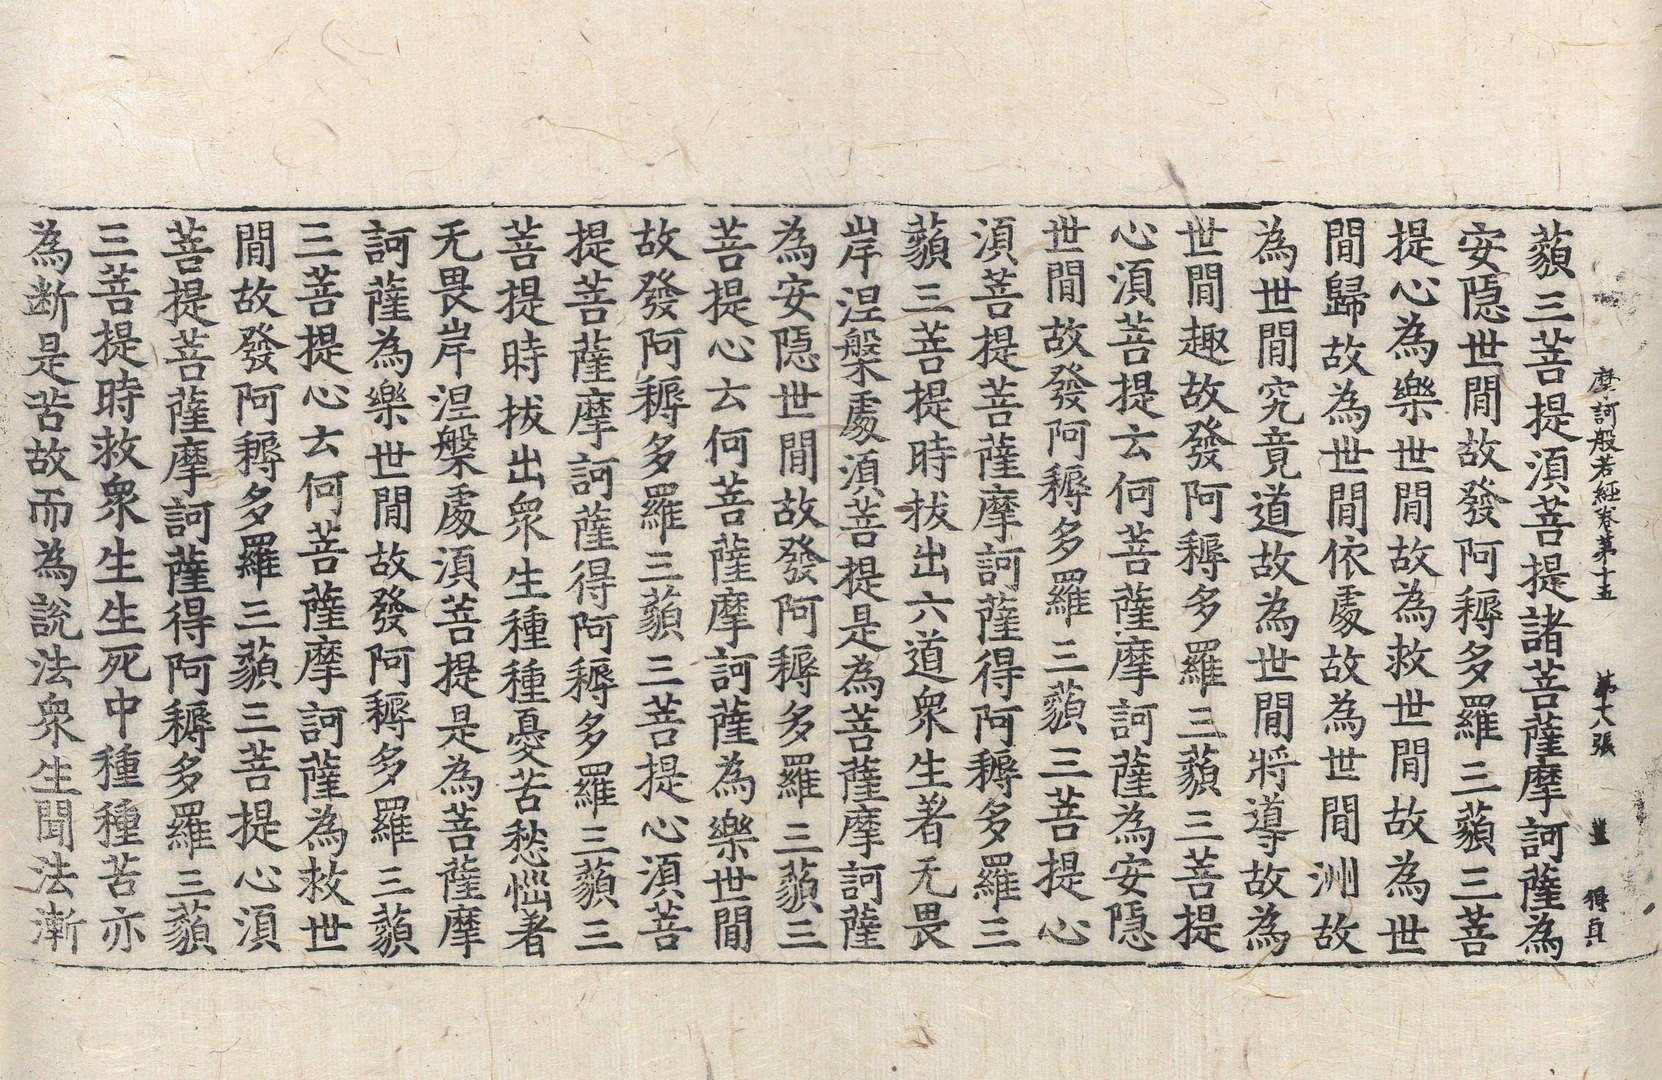 摩訶般若經卷第十五 第十八張 豈 得貟
藐三菩提湏菩提諸菩薩摩訶薩為
安隱世閒故發阿耨多羅三藐三菩
提心為樂世閒故為救世閒故為世
閒歸故為世閒依處故為世閒洲故
為世閒究竟道故為世閒將導故為
世閒趣故發阿耨多羅三藐三菩提
心湏菩提云何菩薩摩訶薩為安隱
世閒故發阿耨多羅三藐三菩提心
湏菩提菩薩摩訶薩得阿耨多羅三
藐三菩提時拔出六道衆生著无畏
岸涅槃處湏菩提是為菩薩摩訶薩
為安隱世閒故發阿耨多羅三藐三
菩提心云何菩薩摩訶薩為樂世閒
故發阿耨多羅三藐三菩提心湏菩
提菩薩摩訶薩得阿耨多羅三藐三
菩提時拔出衆生種種憂苦愁惱著
无畏岸涅槃處湏菩提是為菩薩摩
訶薩為樂世閒故發阿耨多羅三藐
三菩提心云何菩薩摩訶薩為救世
閒故發阿耨多羅三藐三菩提心湏
菩提菩薩摩訶薩得阿耨多羅三藐
三菩提時救衆生生死中種種苦亦
為断是苦故而為說法衆生聞法漸